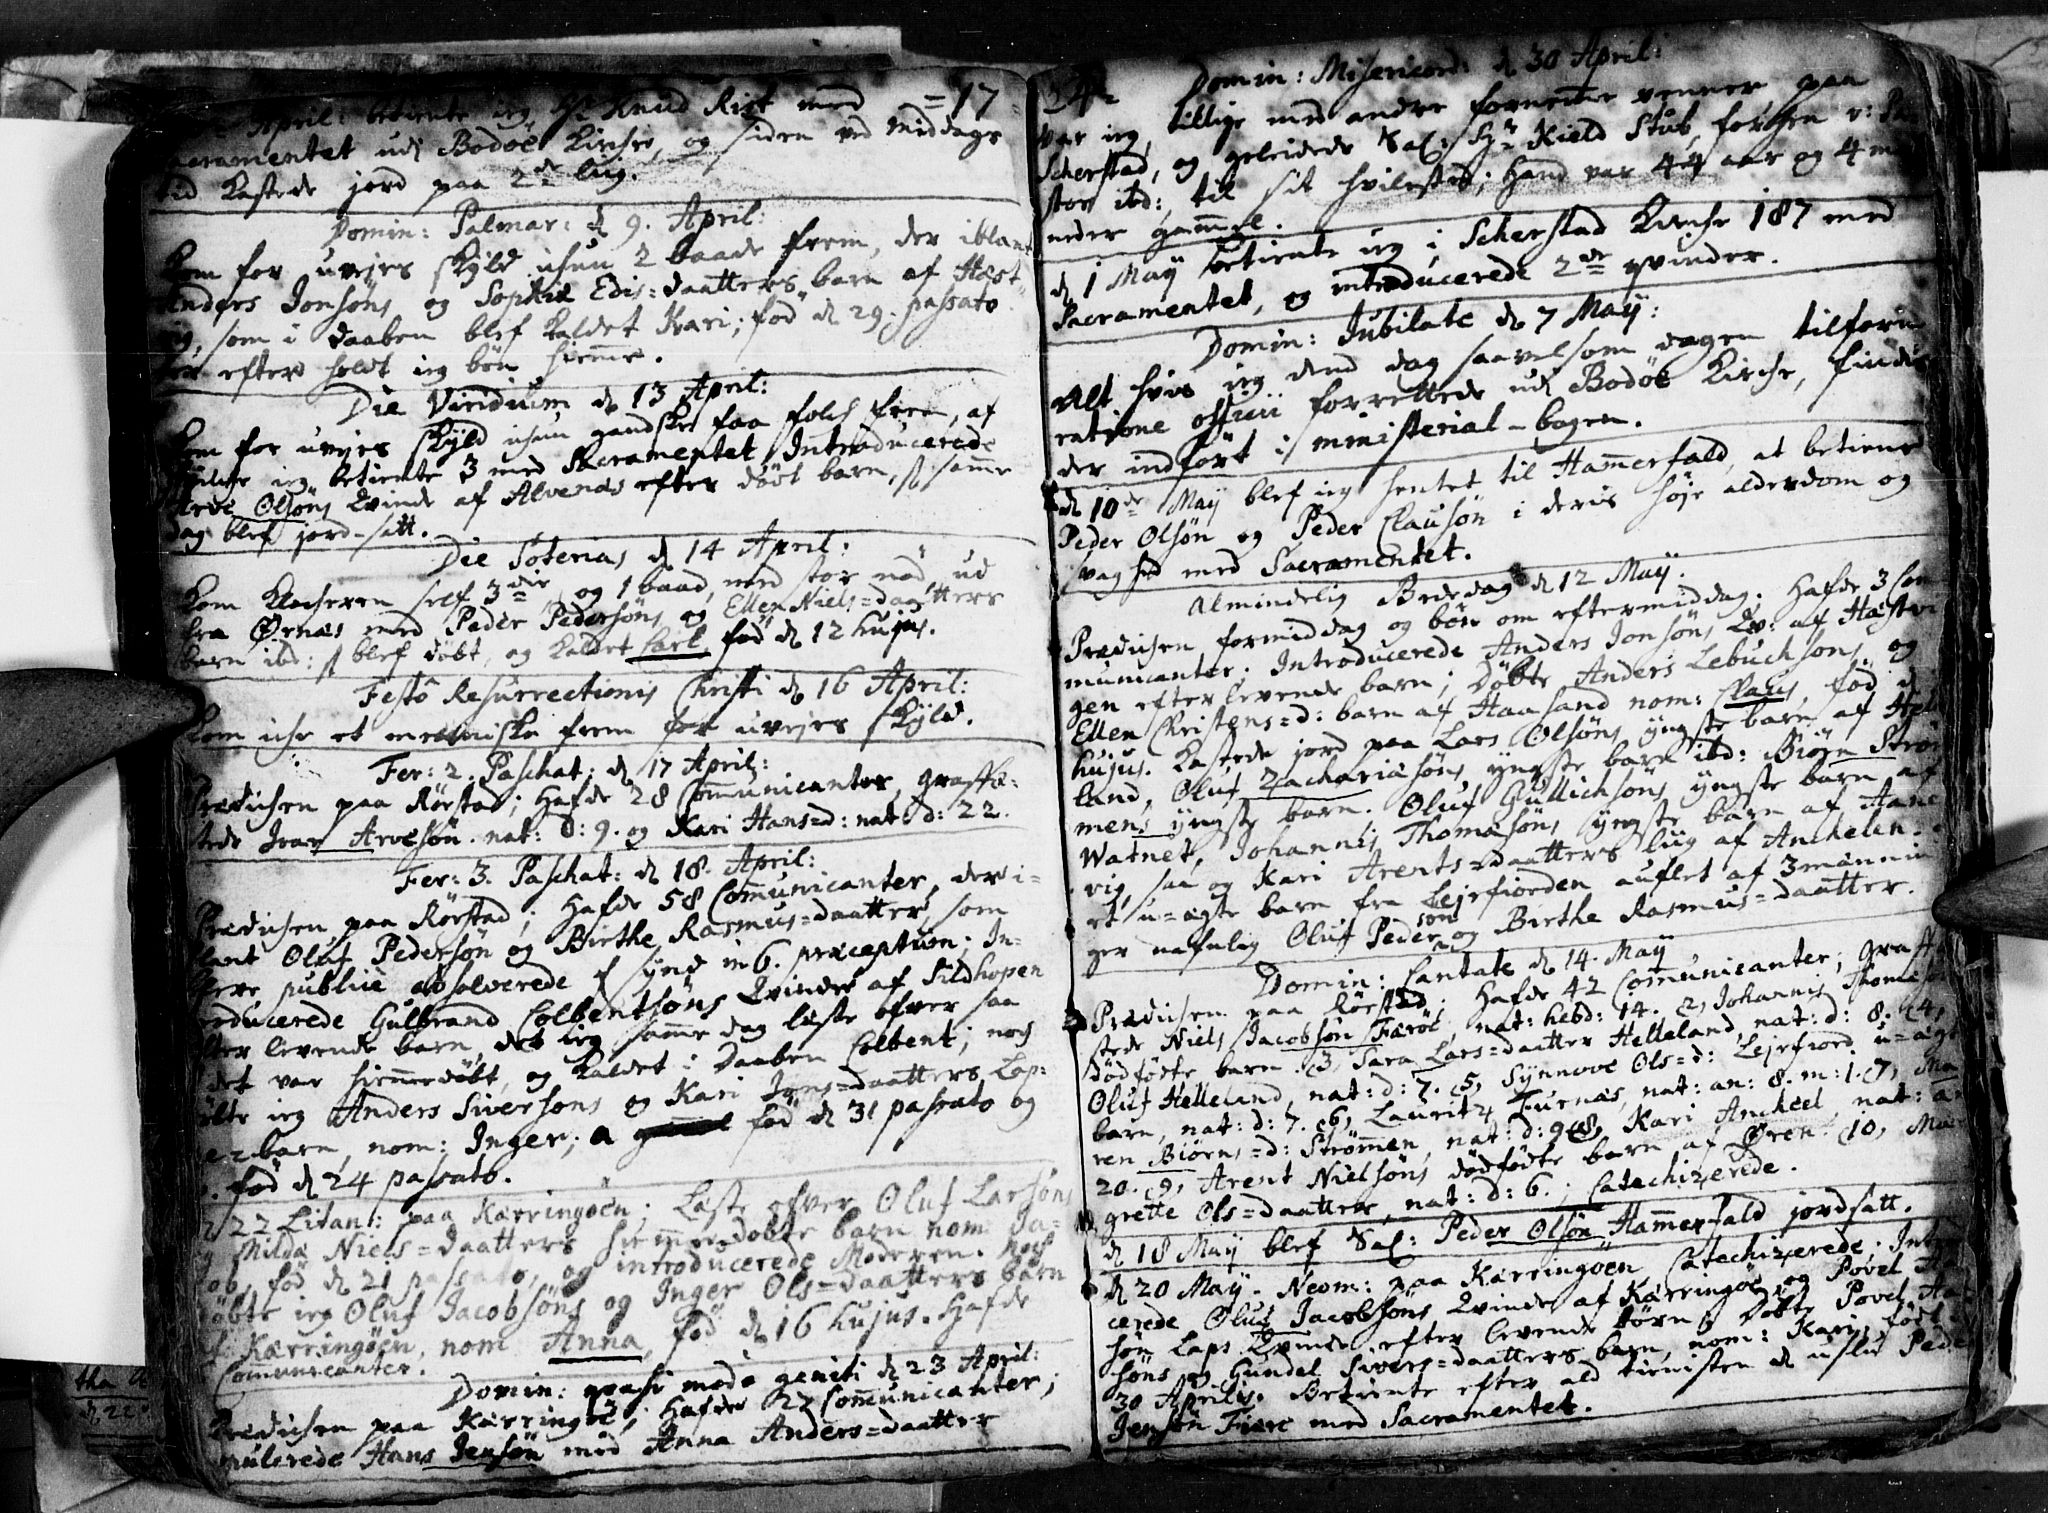 April: betiente ieg Hr Knud Rist med = 17
Sacramentet udj Bodöe Kirche, og siden ved middags
tid kastede jord paa 2de liig.
Domin: Palmar: d 9. April:
Kom for uveyrs skyld ichun 2 baade frem, der iblant
Anders Jonsöns og Sophia Edis=daatters barn af Hæst
som i daaben blef kaldet Kari, föd d 29. passato
efter holdt ieg bön hiemme.
Die Viridium d 13 April:
Kom for uveyrs skyld ichun gandske faa folch frem, af
ieg betiente 3 med Sacramentet. Introducerede
Olsöns Qvinde af Alvenæs efter dödt barn, samme
dag blef jord-satt.
Die Soterias d 14 April:
Kom Klocheren self 3die og 1 baad, med stor nöd, ud
fra Ørnæs med Peder Pedersöns og Ellen Niels=daatters
barn ibd: blef döbt, og kaldet Carl, föd d 12 hujus.
Festo Resurrectionis Christi d 16 April:
Kom iche et menniske frem for uveyrs skyld.
Fer: 2. Paschat: d 17 April:
Prædichen paa Rörstad; Hafde 28 Communicanter, Graffæ=
stede Ivar Arvesön. nat: d: 9. og Kari Hans=d: nat: d: 22.
Fer: 3. Paschat: d 18. April:
Prædichen paa Rörstad; Hafde 58 Communicanter, der i=
blant Oluf Pedersön og Birthe Rasmus=daatter, som
publice absolverede synd in 6. præceptum. In=
troducerede Gulbrand Colbentsöns Qvinde af Sildhopen
efter levende barn, det ieg samme dag læste ofver saa
det var hiemmedöbt, og kaldet i Daaben Colbent; noch
döbte ieg Anders Siversöns og Kari Jens=daatters Lap:
barn, nom: Inger; föd d 31 passato og
föd d 24 passato.
d 22 Litan: paa Kærringöen; Læste ofver Oluf Larsöns
og Milda Niels=daatters hiemme-döbte barn nom: Ja=
cob, föd d 21 passato, og introducerede Moderen. Noch
döbte ieg Oluf Jacobsöns og Inger Ols=daatters barn
af Kærringöen, nom: Anna, föd d 16 hujus. Hafde
Communicanter.
Domin: quasi modo geniti d 23 April:
Prædichen paa Kærringöe; Hafde 27 Communicanter;
Copulerede Hans Jensön med Anna Anders=daatter
Domin: Misericord: d 30 April:
var ieg tillige med andre fornemme venner paa
Scherstad, og geleidede Sal: Hr Kield Stub, forhen v: Pa
stor ibd: til sit hvilested; hand var 44 aar og 4 maa
neder gammel.
d 1 May betiente ieg i Scherstad Kirche 187 med
Sacramentet, og introducerede 2de qvinder.
Domin: Jubilate d 7 May:
Alt hvis ieg dend dag saavelsom dagen tilforn
ratione officii forrettede udj Bodöe Kirche, findis
der indfört i ministerial-bogen.
d 10de May blef ieg hentet til Hammerfald, at betiene
Peder Olsön og Peder Clausön i deris höje alderdom og
svaghed med Sacramentet.
Almindelig Bededag d 12 May.
Prædichen formiddag og bön om eftermiddag. Hafde 3 Com
municanter. Introducerede Anders Jonsöns Qv: af Hæstvi
gen efter levende barn; Döbte Anders Lebuchsöns og
Ellen Christens=d: barn af Haasand nom: Claus, föd d
hujus. Kastede jord paa Lars Olsöns yngste barn af Helle
land, Oluf Zachariæsöns yngste barn ibd: Biörn Ström
mens yngste barn. Oluf Gullichsöns yngste barn af
Watnet, Johannis Thomæsöns yngste barn af Hane
vig, saa og Kari Arents=daatters liig af Anchelen.
et u=ægte barn fra Lejrfiorden auflet af 3männin
ger nafnlig Oluf Pedersön og Birthe Rasmus=daatter.
Domin: Cantate d 14. May
Prædichen paa Rörstad; Hafde 42 Communicanter; Graffæ
stede Niels Jacobsön Færöe, nat: hebd: 14. (2, Johannis Thomæsöns
dödfödte barn. (3, Sara Lars=daatter Helleland, nat: d: 8. (4,
Oluf Helleland, nat: d: 7. (5, Synnove Ols=d: Lejrfiord u=ægte
barn, nat: d: 7. (6, Lauritz Furnæs, nat: an: 8. m: 1. (7, Ma
ren Biörns=d: Strömmen, nat: d: 9. (8, Kari Anchel, nat: an
20. (9, Arent Nielsöns dödfödte barn af Øren. (10, Mar
grette Ols=daatter, nat: d: 6.; Catechizerede.
d 18 May blef Sal: Peder Olsön Hammerfald jordsatt.
d 20 May. Neom: paa Kærringöen Catechizerede; Intro
cerede Oluf Jacobsöns Qvinde af Kærringöe, og Povel Han
sön Laps Qvinde efter levende börn; Döbte Povel Han
söns og Gundel Sivers=daatters barn, nom: Kari, födt
30 Aprilis. Betiente efter ald tienisten d usle Peder
Jensön Fiære med Sacramentet.